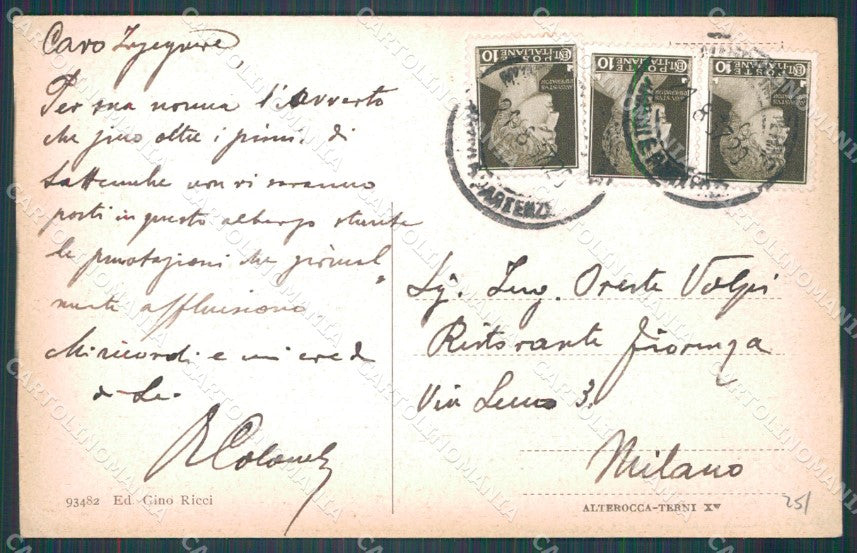 Caro Ingegnere,
Per sua norma l'Avverto
che fino oltre i primi di
Settembre non vi saranno
posti in questo albergo stante
le prenotazioni che giornal„
mente affluiscono
Mi ricordi e mi creda
di Lei
93482 Ed. Gino Ricci
CENT. 10
POSTE ITALIANE
CENT. 10
POSTE ITALIANE
CENT. 10
POSTE ITALIANE
PARTENZE
Sig. Ing. Oreste Volpi
Ristorante
Via 3.
Milano
ALTEROCCA-TERNI
251
CARTOLINOMANIA